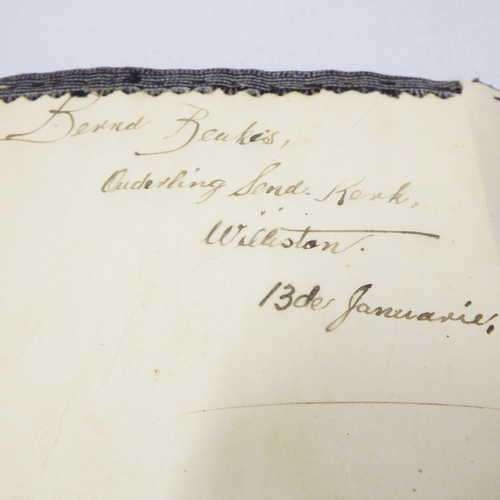 Bernd Beukes,
Ouderling Send. Kerk,
Williston.
13de Januarie,